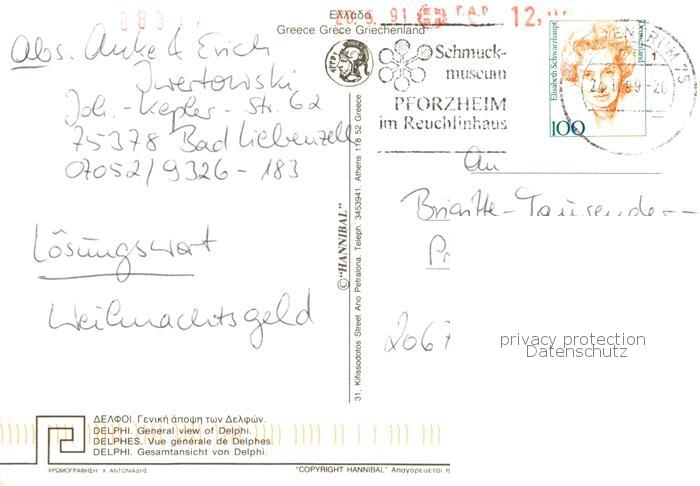 Ελλάδα
Greece Grèce Griechenland
Abs. Anke & Erich
Joh.-Kepler-Str. 62
75378 Bad Liebenzell
07052/9326-183
Lösungswort
Weihnachtsgeld
©"HANNIBAL"
31, Kifissodotos Street Ano Petralona. Teleph: 3453941. Athens 118 52 Greece
91
12,
Schmuck-
museum
PFORZHEIM
im Reuchlinhaus
Elisabeth Schwarzhaupt
Deutschland
100
An
Brigitte-Tausender-
2067
privacy protection
Datenschutz
ΔΕΛΦΟΙ. Γενική άποψη των Δελφών.
DELPHI. General view of Delphi.
DELPHES. Vue générale de Delphes.
DELPHI. Gesamtansicht von Delphi.
ΧΡΩΜΟΓΡΑΦΗΣΗ: Χ. ΑΝΤΩΝΙΑΔΗΣ
"COPYRIGHT HANNIBAL" Απαγορεύεται η